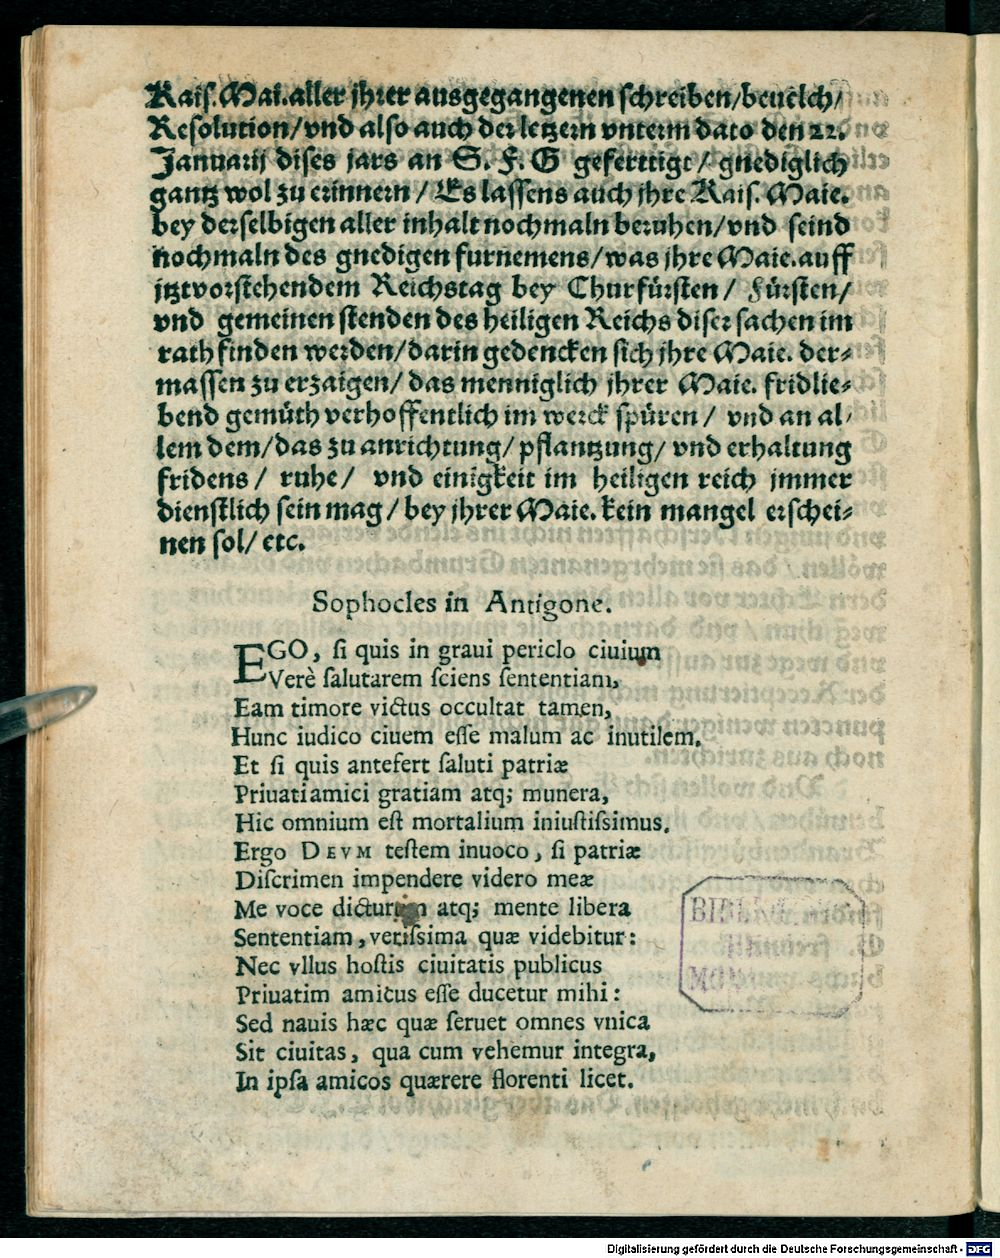 Kais. Mai. aller jhrer ausgegangenen schreiben/beuelch/
Resolution/vnd also auch der letzern vnterm dato den 22.
Januarij dises jars an S. F. G geferttigt/ gnediglich
gantz wol zu erinnern / Es lassens auch jhre Kais. Maie.
bey derselbigen aller inhalt nochmaln beruhen/vnd seind
nochmaln des gnedigen furnemens/was jhre Maie. auff
jtztvorstehendem Reichstag bey Churfürsten/ Fürsten/
vnd gemeinen stenden des heiligen Reichs diser sachen im
rath finden werden/darin gedencken sich jhre Maie. der⸗
massen zu erzaigen/ das menniglich jhrer Maie. fridlie⸗
bend gemüth verhoffentlich im werck spüren/ vnd an al⸗
lem dem/das zu anrichtung/ pflantzung/ vnd erhaltung
fridens/ ruhe/ vnd einigkeit im heiligen reich jmmer
dienstlich sein mag/ bey jhrer Maie. kein mangel erschei⸗
nen sol/ etc.
Sophocles in Antigone.
EGO, ſi quis in graui periclo ciuium
Verè ſalutarem ſciens ſententiam,
Eam timore victus occultat tamen,
Hunc iudico ciuem eſſe malum ac inutilem.
Et ſi quis antefert ſaluti patriæ
Priuati amici gratiam atq; munera,
Hic omnium eſt mortalium iniuſtiſsimus.
Ergo DEVM teſtem inuoco, ſi patriæ
Diſcrimen impendere videro meæ
Me voce dicturum atq; mente libera
Sententiam, veriſsima quæ videbitur:
Nec vllus hoſtis ciuitatis publicus
Priuatim amicus eſſe ducetur mihi:
Sed nauis hæc quæ ſeruet omnes vnica
Sit ciuitas, qua cum vehemur integra,
In ipſa amicos quærere florenti licet.
Digitalisierung gefördert durch die Deutsche Forschungsgemeinschaft - DFG